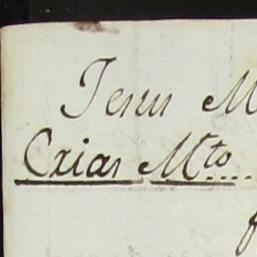 Jesus M
Crias Mto....